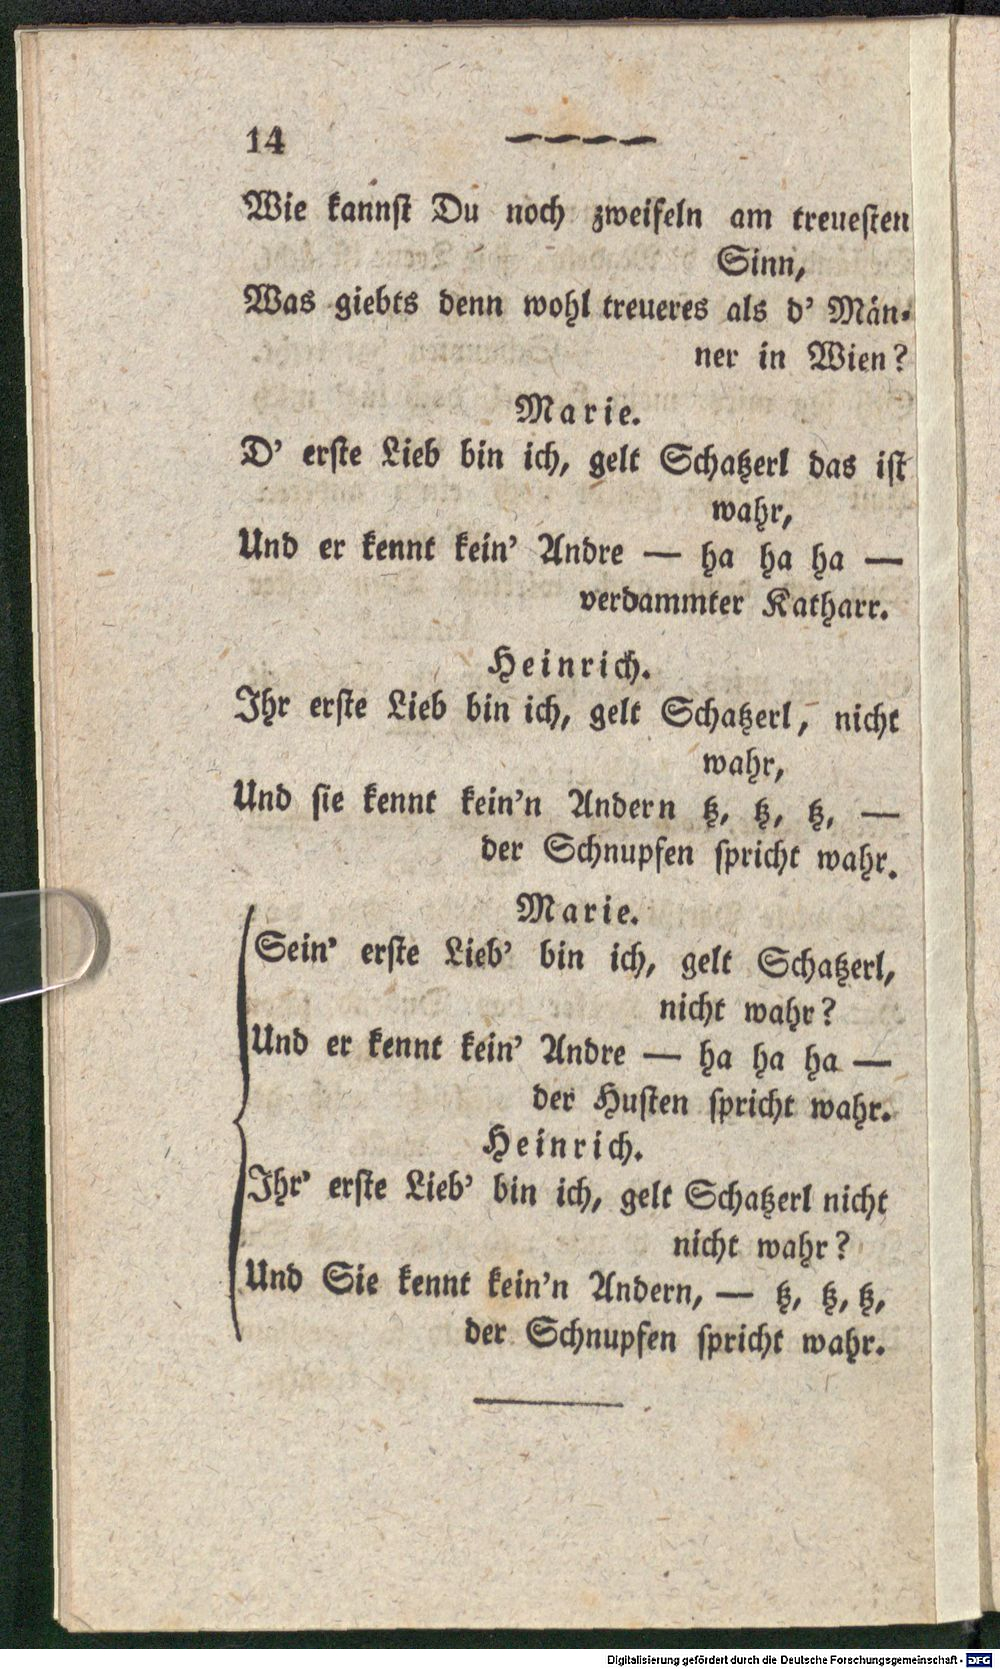 14
Wie kannst Du noch zweifeln am treuesten
Sinn,
Was giebts denn wohl treueres als d' Män-
ner in Wien?
Marie.
D' erste Lieb bin ich, gelt Schatzerl das ist
wahr,
Und er kennt kein' Andre — ha ha ha —
verdammter Katharr.
Heinrich.
Ihr erste Lieb bin ich, gelt Schatzerl, nicht
wahr,
Und sie kennt kein'n Andern tz, tz, tz, —
der Schnupfen spricht wahr.
Marie.
Sein' erste Lieb' bin ich, gelt Schatzerl,
nicht wahr?
Und er kennt kein' Andre — ha ha ha —
der Husten spricht wahr.
Heinrich.
Ihr' erste Lieb' bin ich, gelt Schatzerl nicht
nicht wahr?
Und Sie kennt kein'n Andern, — tz, tz, tz,
der Schnupfen spricht wahr.
Digitalisierung gefördert durch die Deutsche Forschungsgemeinschaft - DFG